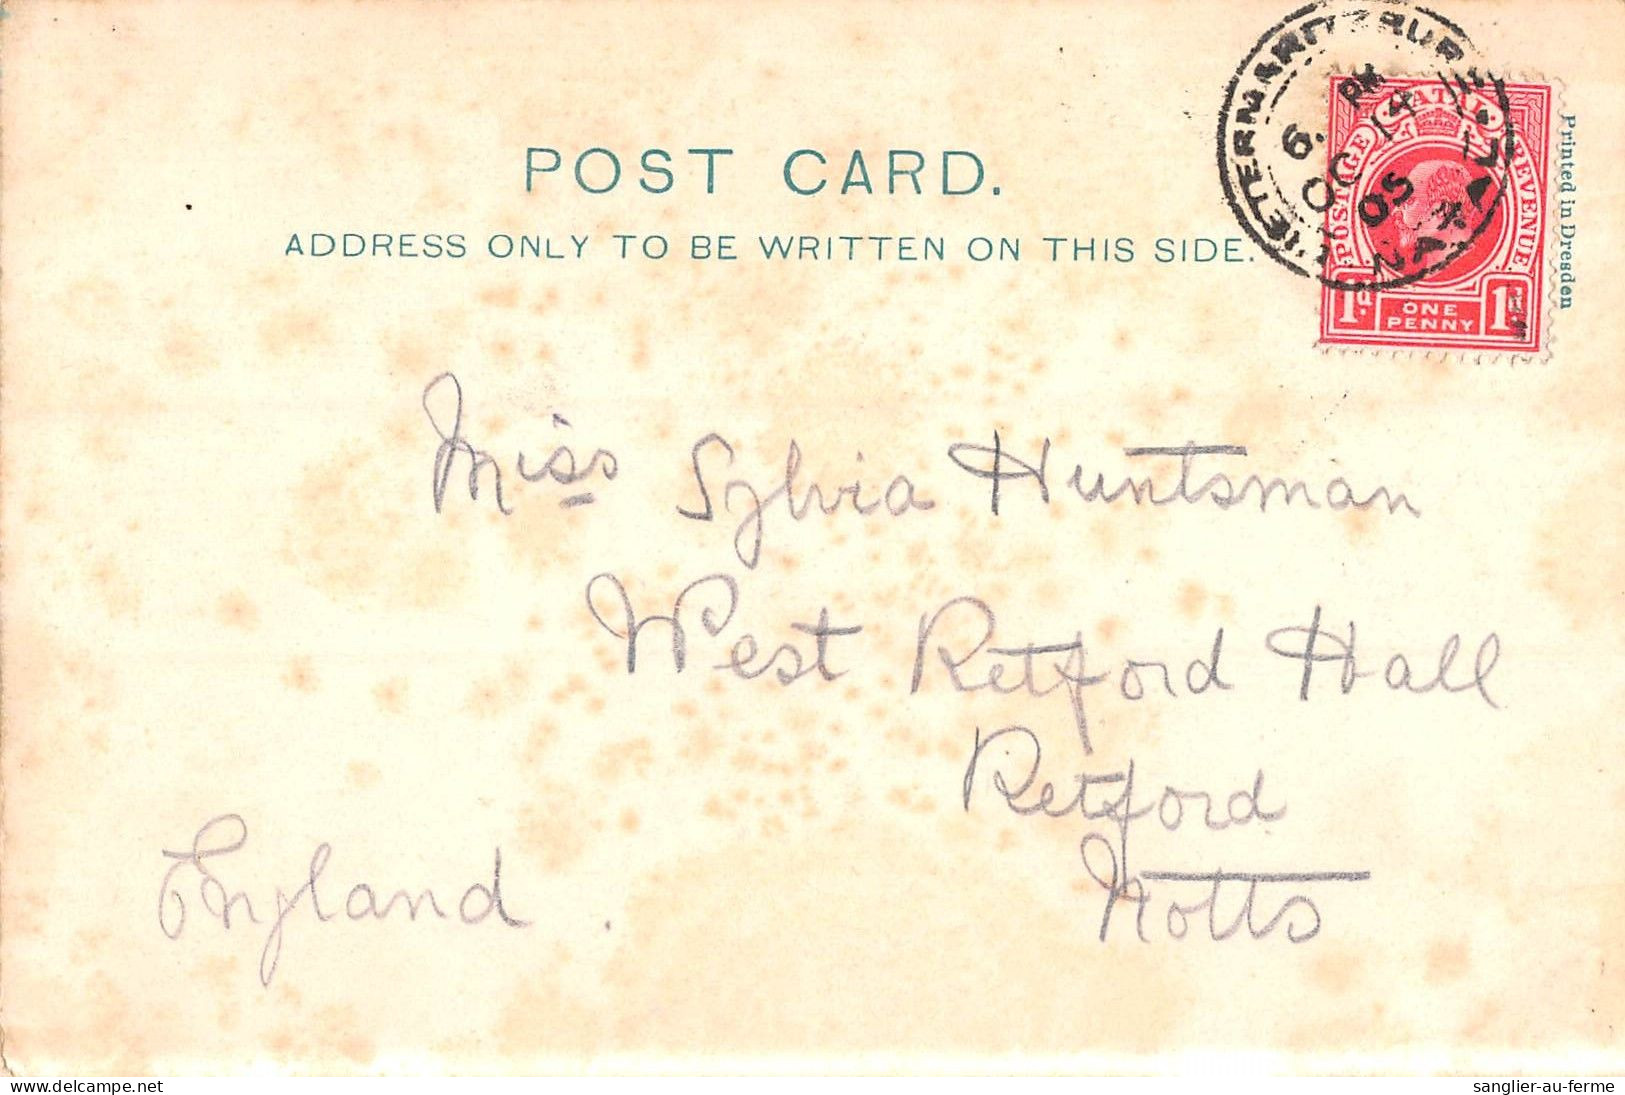 POST CARD.
ADDRESS ONLY TO BE WRITTEN ON THIS SIDE.
PIETERMARITZBURG
NATAL
6. PM
OC 14
05
NATAL
POSTAGE
REVENUE
1d
ONE
PENNY
1d
Printed in Dresden
Miss Sylvia Huntsman
West Retford Hall
Retford
Notts
England.
delcampe.net
sanglier-au-ferme